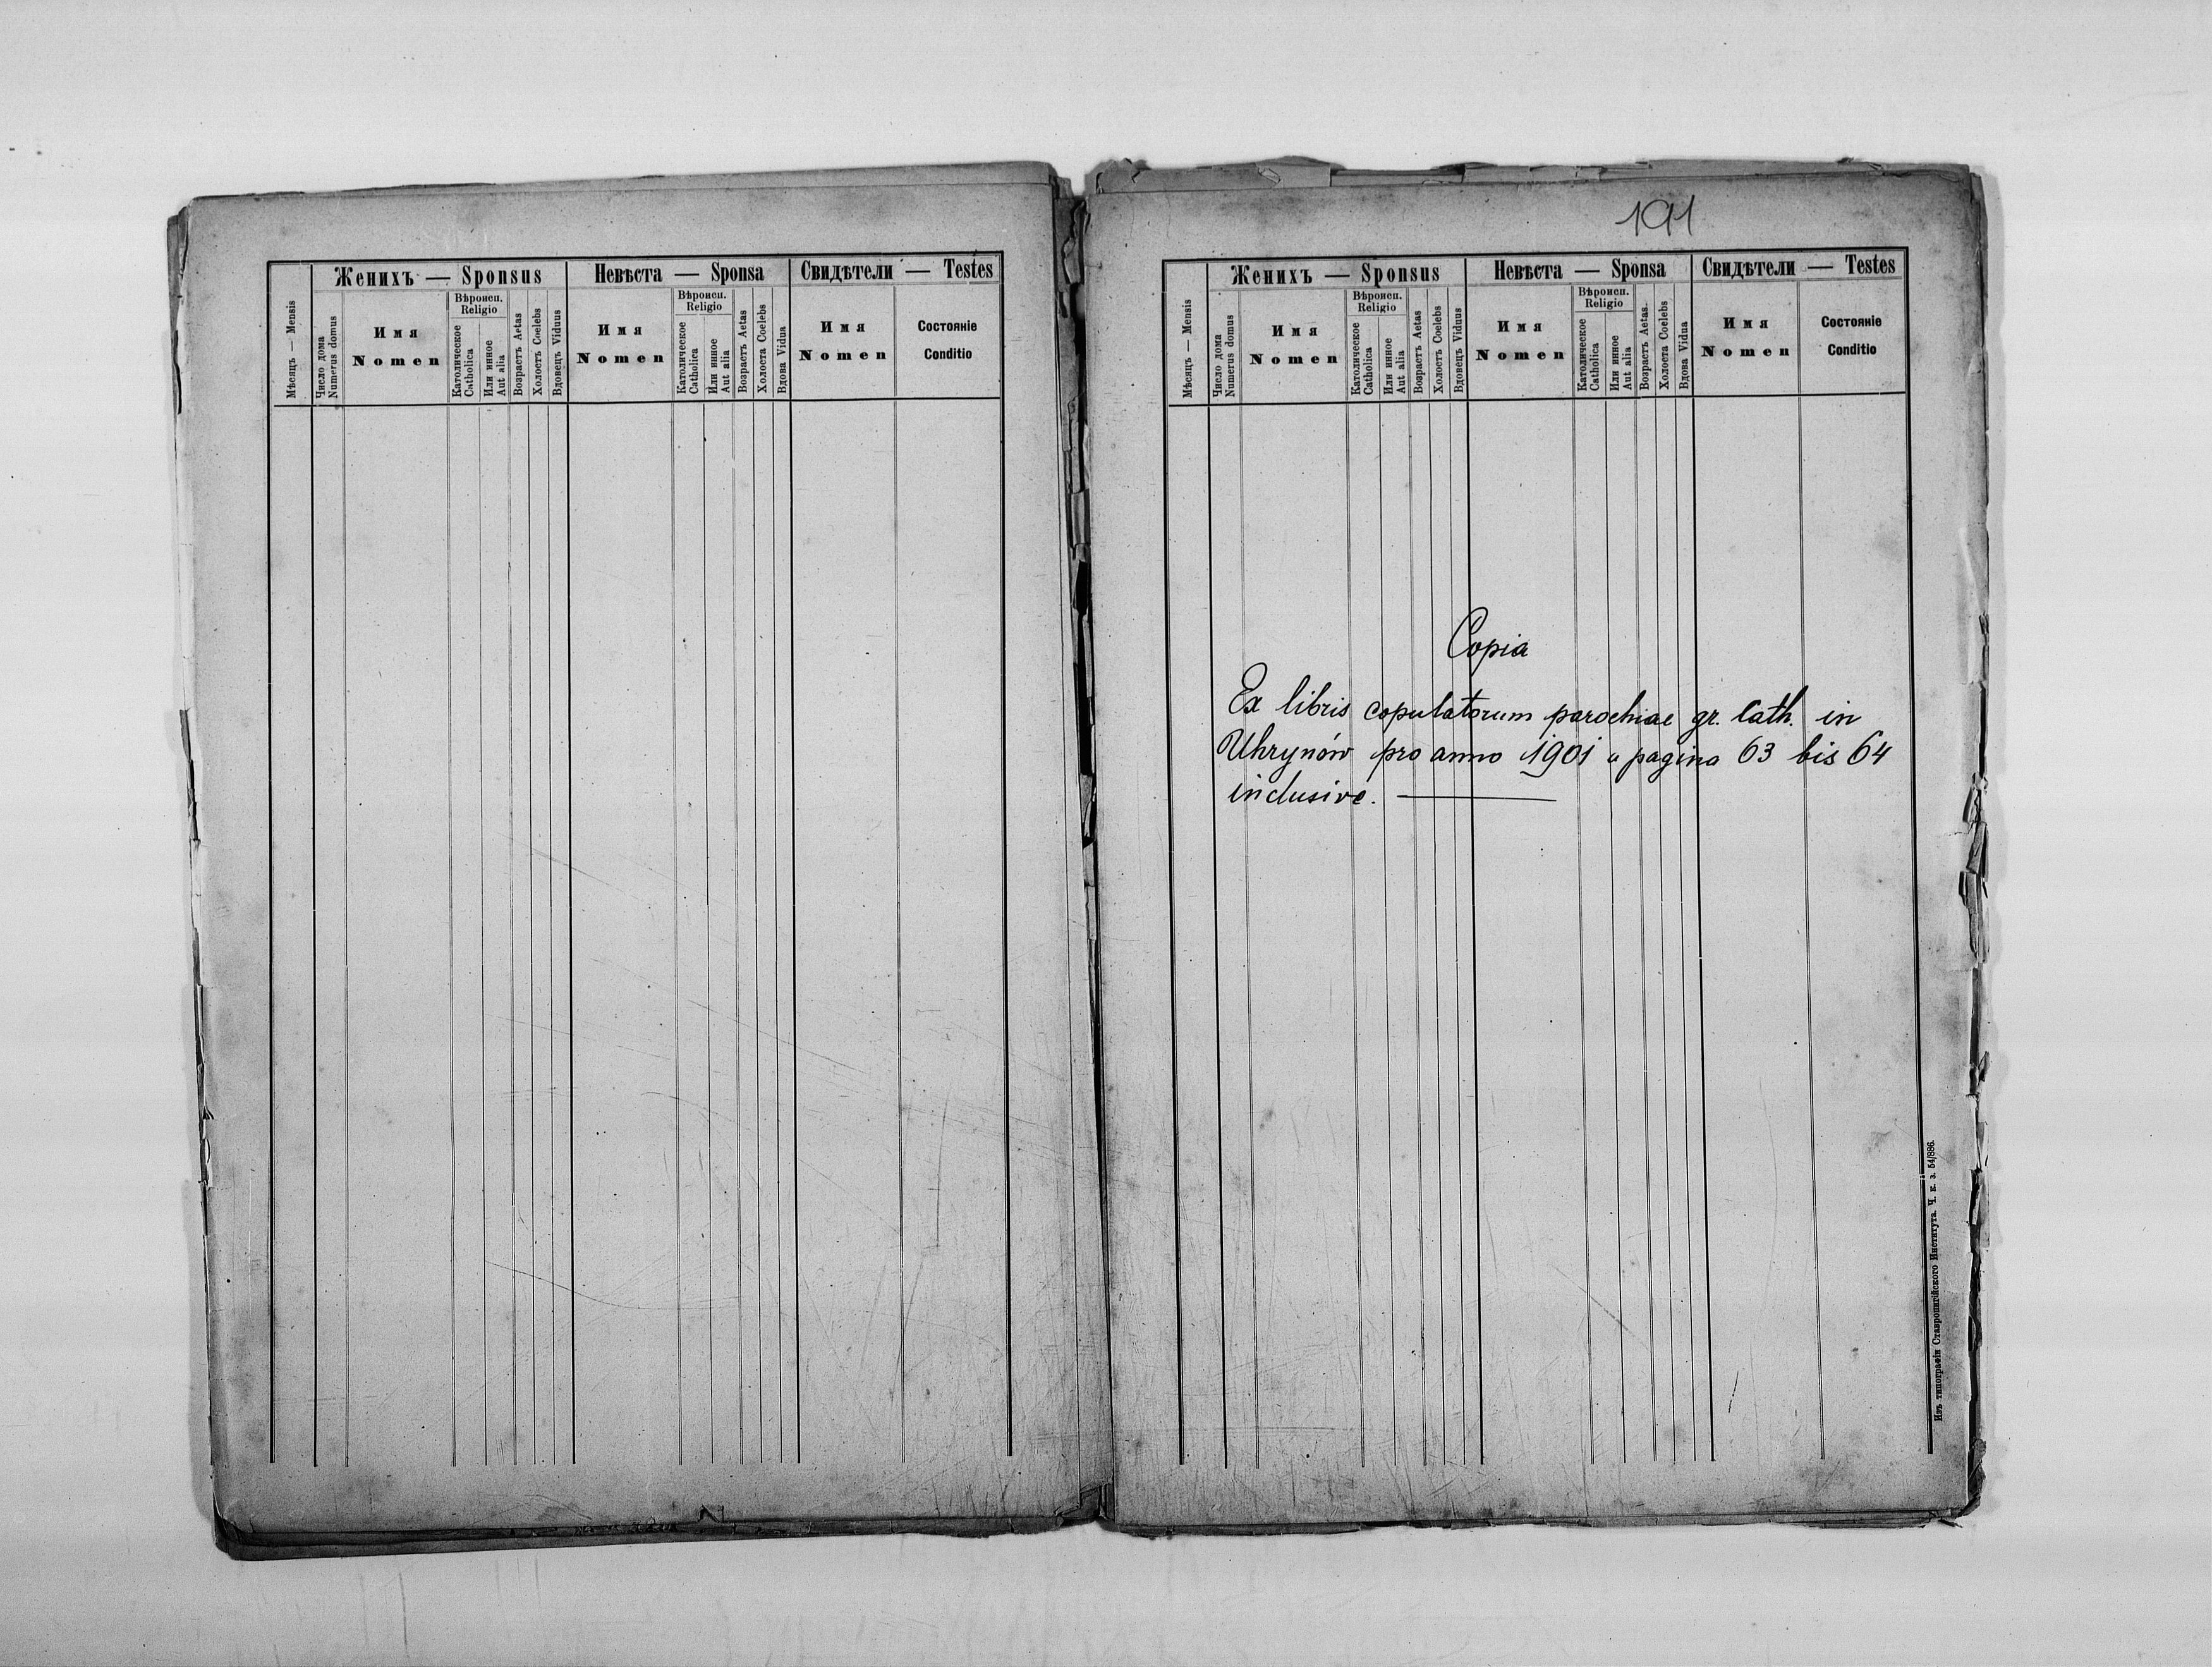 Женихъ — Sponsus
Невѣста — Sponsa
Свидѣтели — Testes
Мѣсяцъ — Mensis
Число дома
Numerus domus
Имя
Nomen
Вѣроисп.
Religio
Католическое
Catholica
Или инное
Aut alia
Возрастъ Aetas
Холостъ Coelebs
Вдовецъ Viduus
Имя
Nomen
Вѣроисп.
Religio
Католическое
Catholica
Или инное
Aut alia
Возрастъ Aetas
Холоста Coelebs
Вдова Vidua
Имя
Nomen
Состояніе
Conditio
191
Женихъ — Sponsus
Невѣста — Sponsa
Свидѣтели — Testes
Мѣсяцъ — Mensis
Число дома
Numerus domus
Имя
Nomen
Вѣроисп.
Religio
Католическое
Catholica
Или инное
Aut alia
Возрастъ Aetas
Холостъ Coelebs
Вдовецъ Viduus
Имя
Nomen
Вѣроисп.
Religio
Католическое
Catholica
Или инное
Aut alia
Возрастъ Aetas
Холоста Coelebs
Вдова Vidua
Имя
Nomen
Состояніе
Conditio
Copia
Ex libris copulatorum parochiae gr. Cath. in
Uhrynów pro anno 1901 a pagina 63 bis 64
inclusive.
Изъ типографіи Ставропигійского Института. Ч. к. з. 54/886.